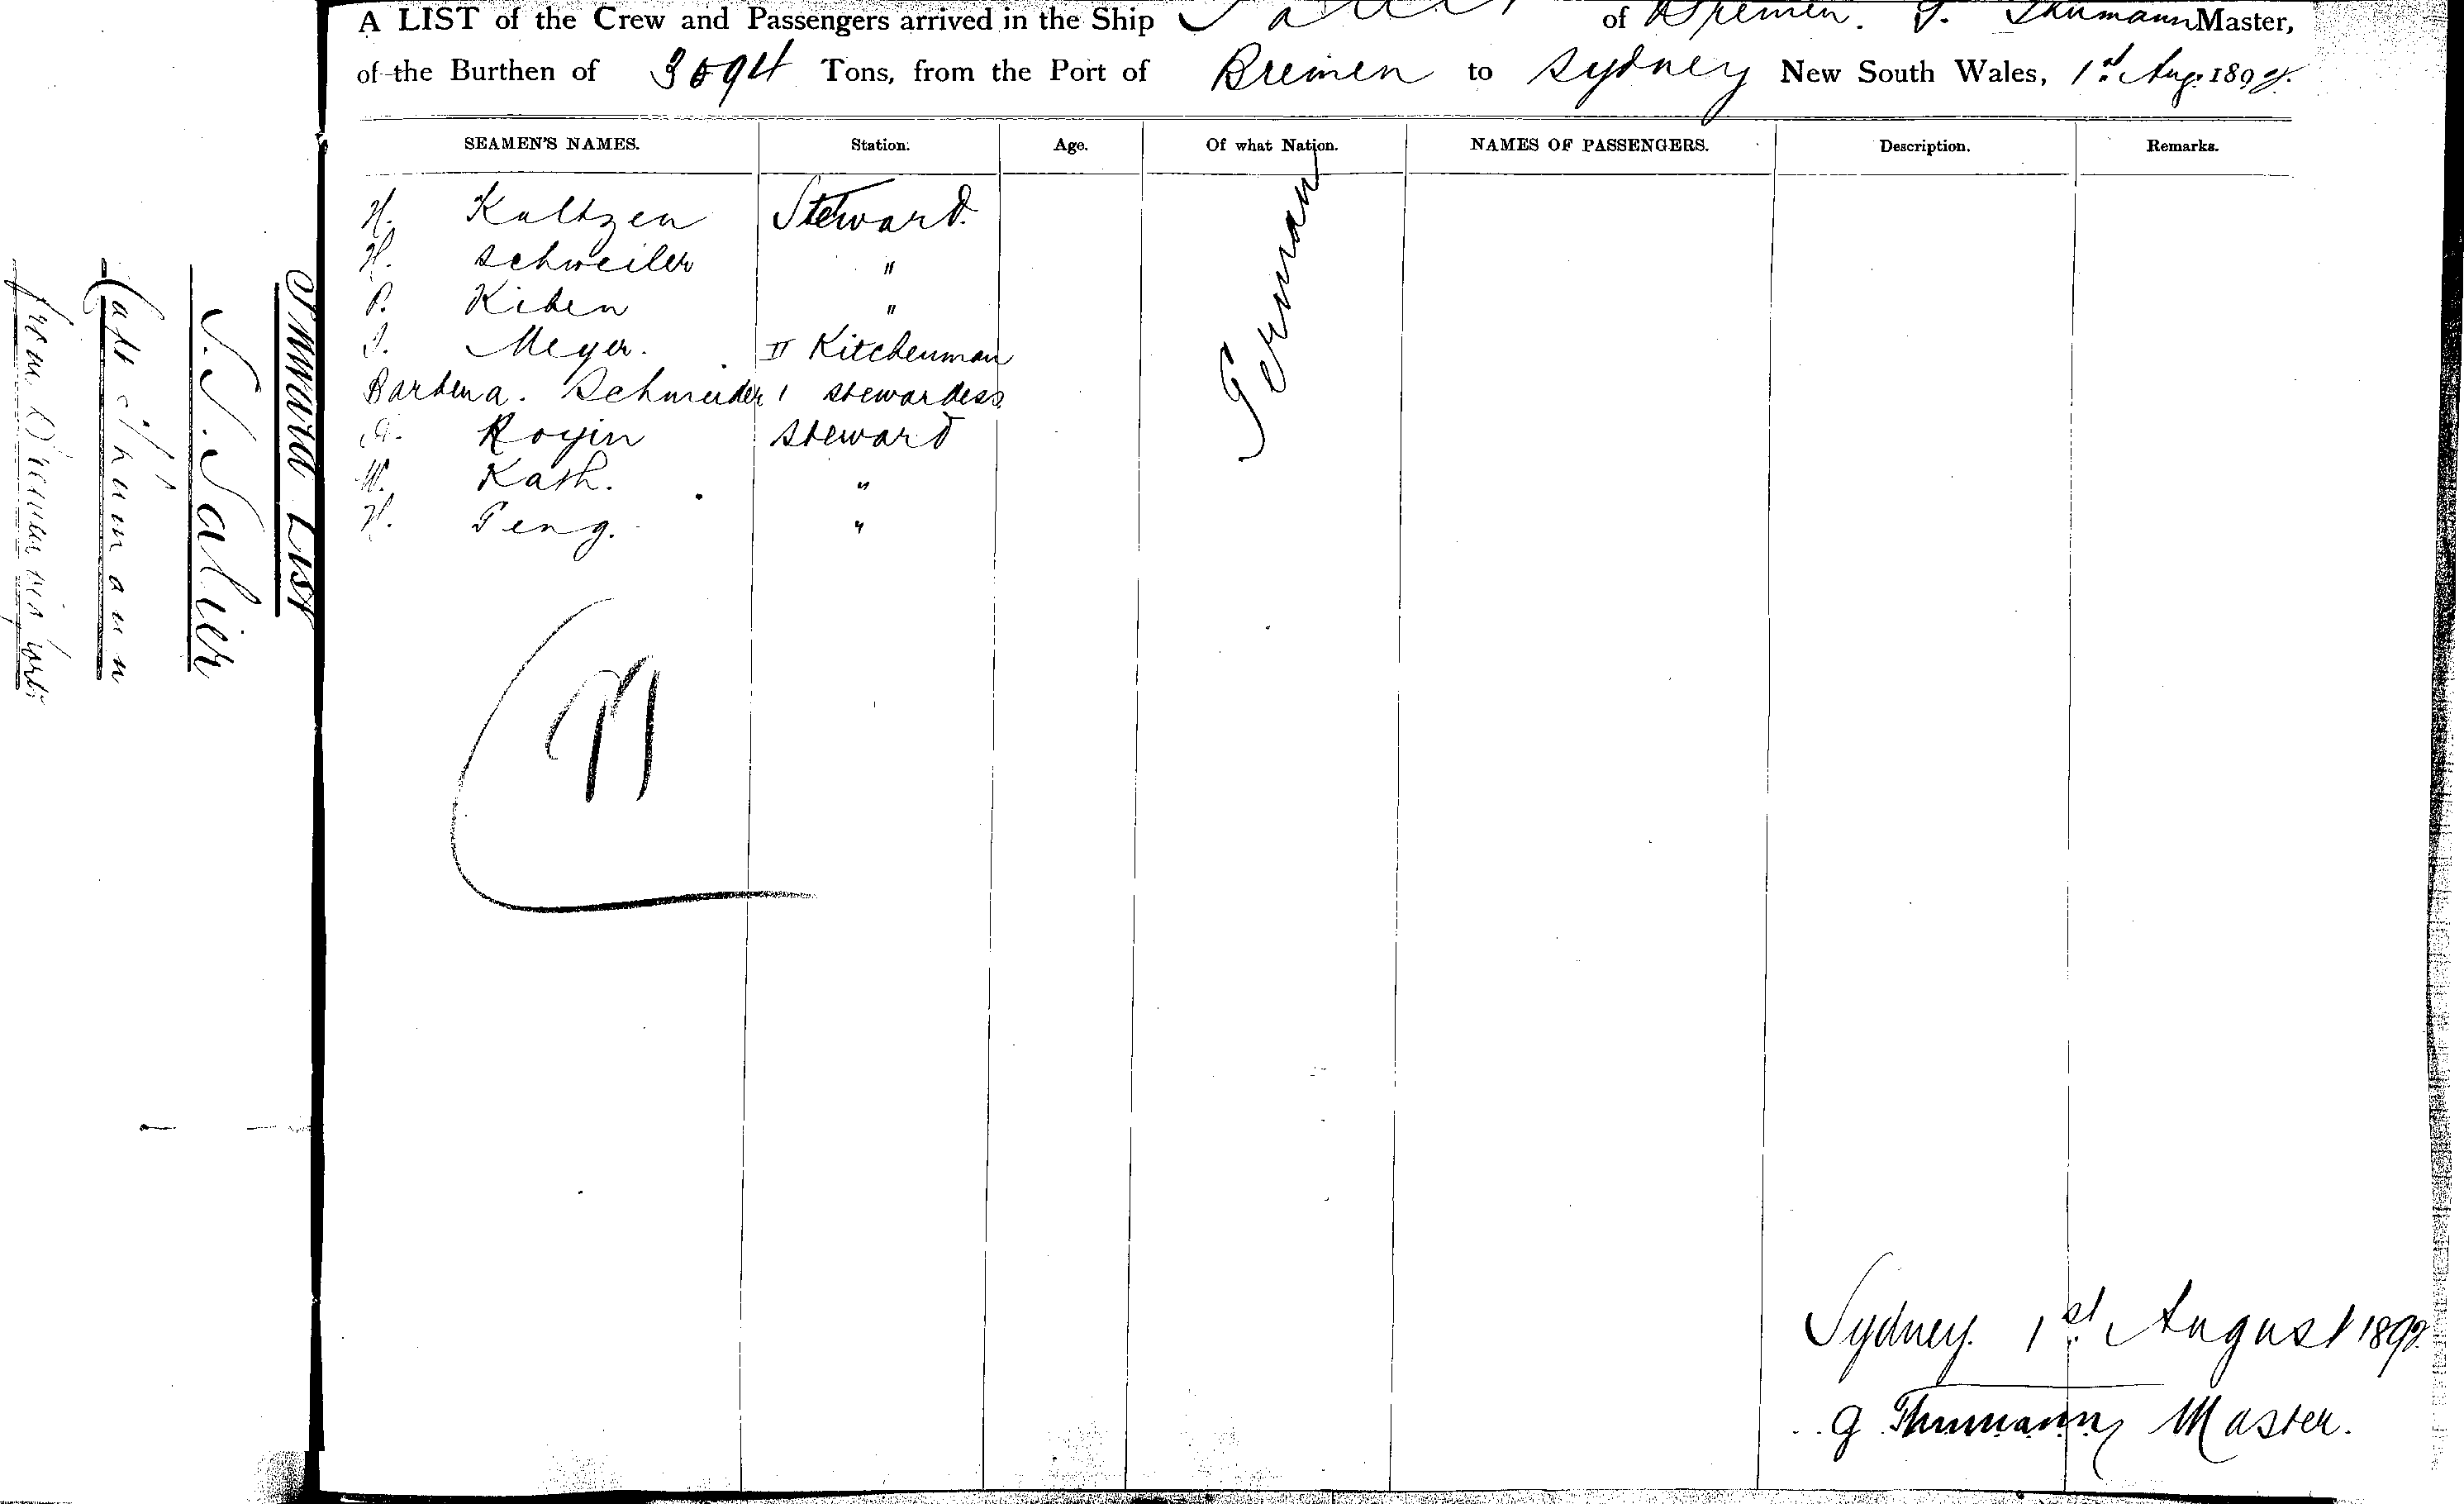 A LIST of the Crew and Passengers arrived in the Ship Salier of Bremen. G. Thumann Master,
of the Burthen of 3094 Tons, from the Port of Bremen to Sydney New South Wales, 1st Aug. 1892.
SEAMEN'S NAMES. Station. Age. Of what Nation. NAMES OF PASSENGERS. Description. Remarks.
H. Kaltzen Steward.
H. Schweiler "
P. Kiben "
Meyer. II Kitchenman
Schneider 1 Stewardess
Royin Steward
W. Kath. "
H. Geng. "
German
Sydney. 1st August 1892.
G Thumann Master.
Inward List
S.S. Salier
Capt Thumann
from Bremen via Ports